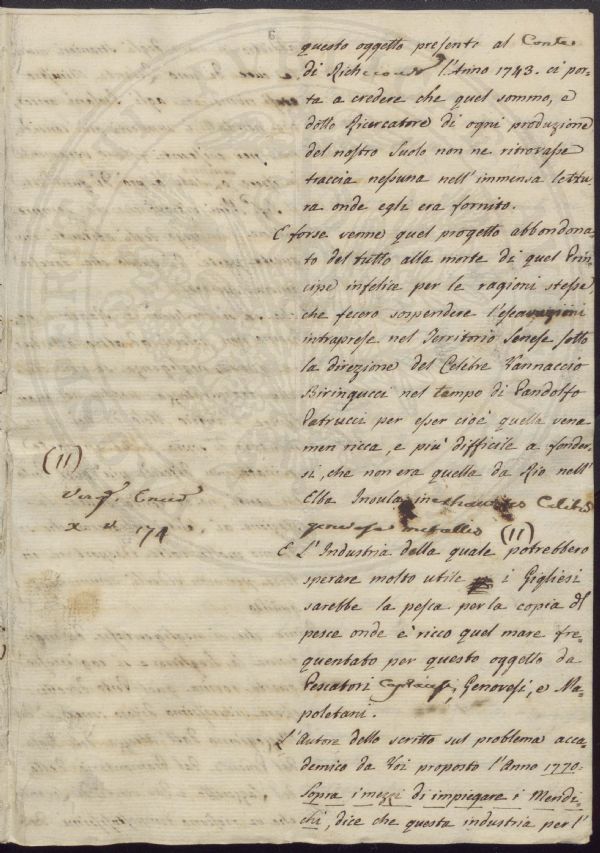 6
questo oggetto presenti al Conte
di Richecourt l'Anno 1743. ci por-
ta a credere che quel sommo, e
dotto Ricercatore di ogni produzione
del nostro Suolo non ne ritrovasse
traccia nessuna nell'immensa lettu-
ra onde egli era fornito.
E forse venne quel progetto abbondona-
to del tutto alla morte di quel Prin-
cipe infelice per le ragioni stesse,
che fecero sospendere l'escavazioni
intraprese nel Territorio Senese sotto
la direzione del Celebre Vannaccio
Biringucci nel tempo di Pandolfo
Petrucci per esser cioè quella vena
men ricca, e più difficile a fonder-
si, che non era quella da Rio nell'
Elba Insula inexhaustis Calibum
generosa metallis (11)
(11)
Virg. Eneid
x. v. 174
E L'Industria della quale potrebbero
sperare molto utile i Gigliesi
sarebbe la pesca per la copia di
pesce onde è ricco quel mare fre-
quentato per questo oggetto da
Pescatori, Genovesi, e Na-
poletani.
L'Autore dello scritto sul problema acca-
demico da Voi proposto l'Anno 1770.
Sopra i mezzi di impiegare i Mendi-
chi, dice che questa industria per l'